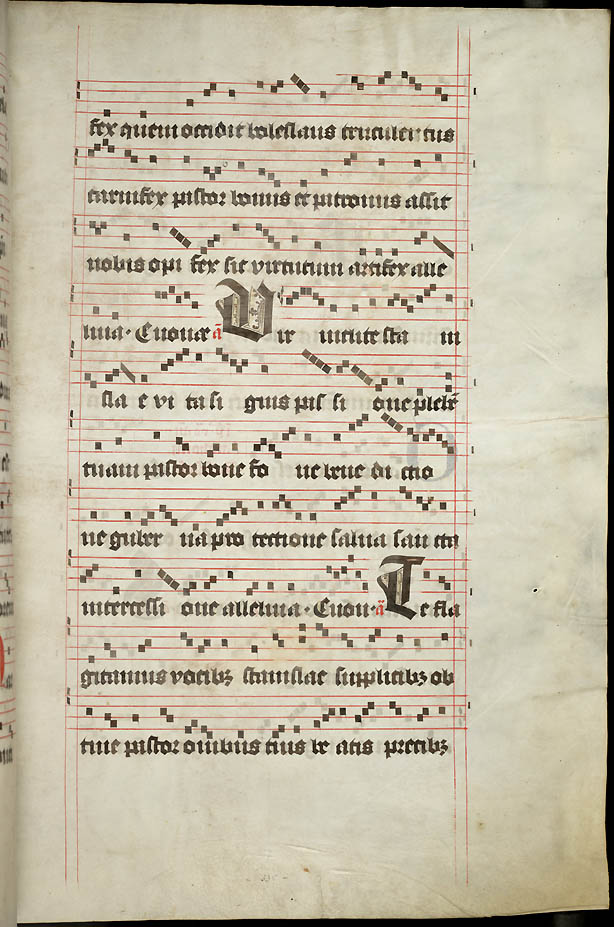 fex quem occidit boleslaus truculentus
carnifex pastor bonus et patronus assit
nobis opi fex sic virtutum artifex alle
luia · Euouae a Vir inclite sta ni
sla e vi ta si gnis pas si one plebē
tuam pastor bone fo ne bene di ctio
ne guber na pro tectione salua san cta
intercessi one alleluia · Euou · a Te fla
gitamus vocibꝫ stanislae supplicibꝫ ob
tine pastor ouibus tuis be atis precibꝫ